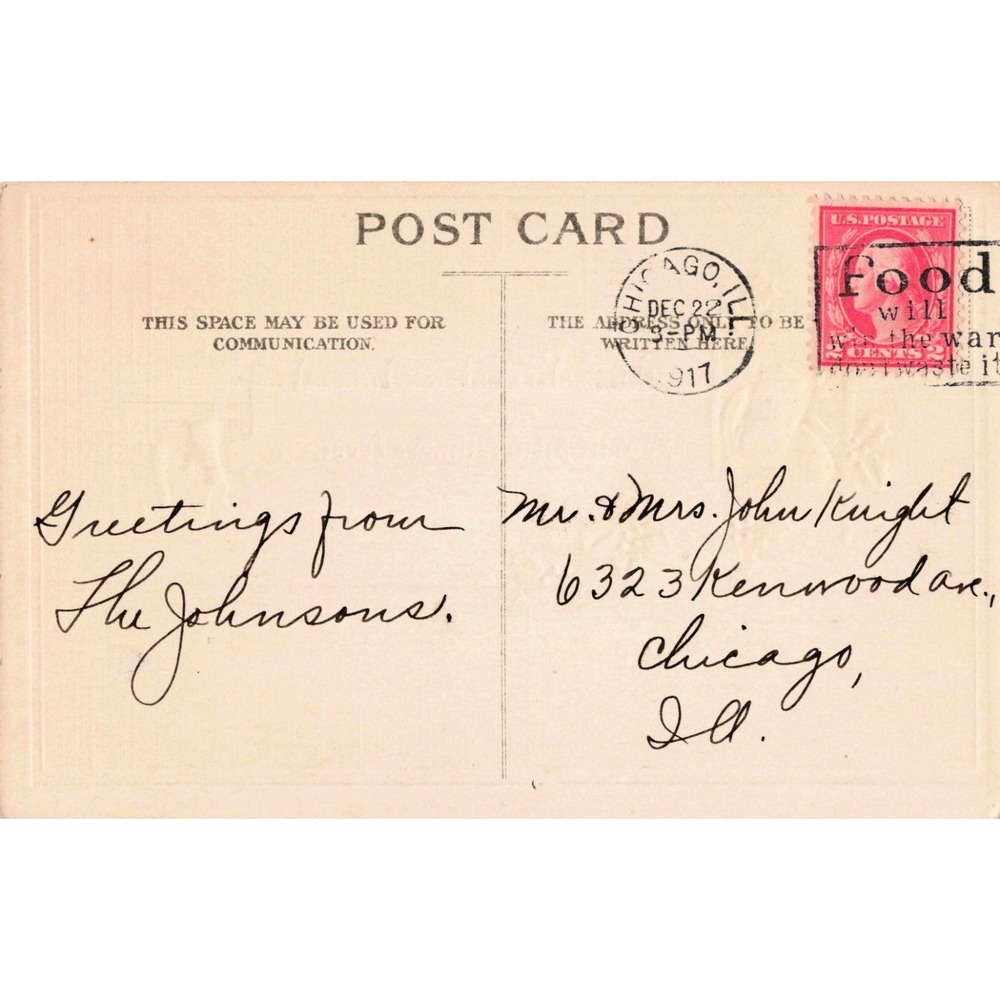 POST CARD
THIS SPACE MAY BE USED FOR
COMMUNICATION.
THE ADDRESS ONLY TO BE
WRITTEN HERE
CHICAGO, ILL.
DEC 22
3-PM
1917
U.S. POSTAGE
2 CENTS 2
food
will
win the war
don't waste it
Greetings from
The Johnsons.
Mr. & Mrs. John Knight
6323 Kenwood Ave.,
Chicago,
Ill.